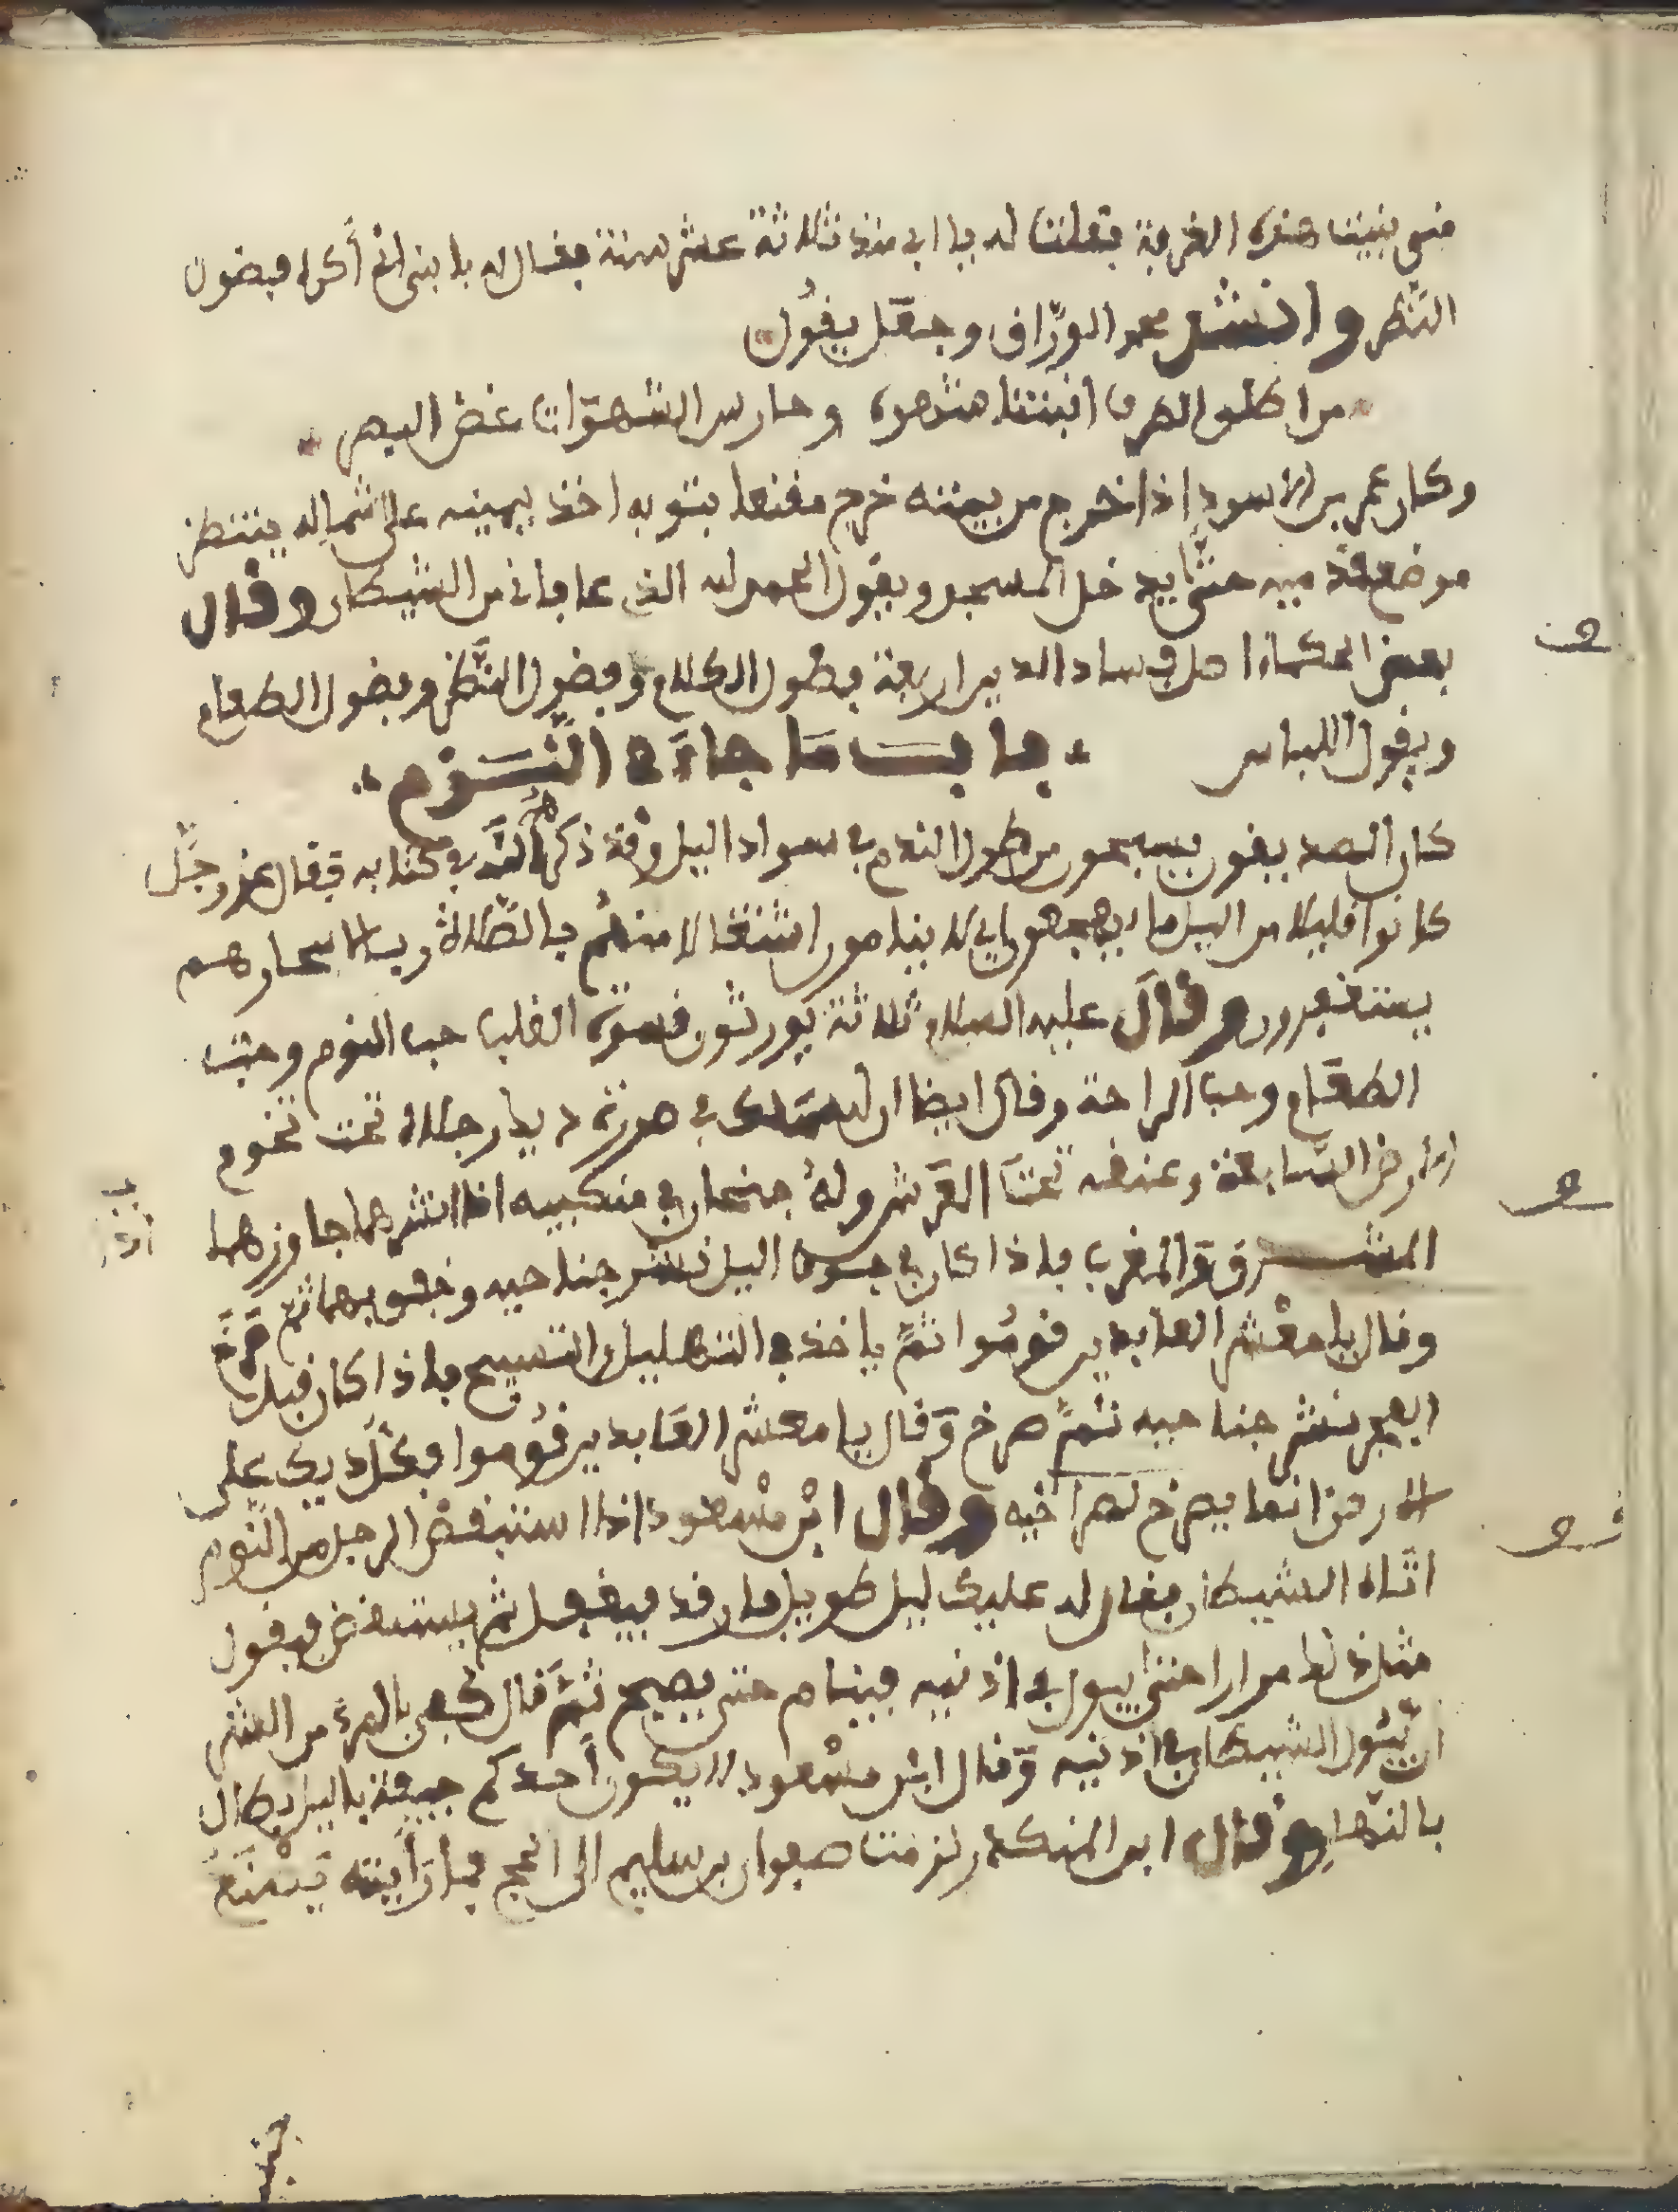 متى بنيت هذه الغرفة فقلت له يا ابى منذ ثلاثة عشر سنة فقال له يا بنى انى أكره فضول
النظر وانشد محمد الوراق وجعل يقول
من اطلق الطرف اجتنى شهوة وحارس الشهوات غض البصر
وكان عمر بن الاسود اذا خرج من بيته خرج مقنعا بثوبه اخذ بيمينه على شماله ينتظر
موضع قدميه حتى يدخل المسجد ويقول الحمد لله الذى عافانى من الشيطان وقال
بعض الحكماء اصل فساد الدين اربعة فضول الكلام وفضول النظر وفضول الطعام
وفضول اللباس باب ما جاء في النوم
كان يقول من طول النوم في سواد اليل وقد ذكرهم الله في كتابه فقال عز وجل
كانوا قليلا من اليل ما يهجعون اى لا ينامون اشتغالا منهم بالصلاة وبالاسحار هم
يستغفرون وقال عليه السلام ثلاثة يورثون قسوة القلب حب النوم وحب
الطعام وحب الراحة وقال ايضا ان لله ملك في صورة ديك رجلاه تحت تخوم
الارض السابعة وعنقه تحت العرش وله جنحان في منكبيه اذا نشرهما جاوز بهما
المشرق والمغرب فاذا كان في جوف اليل نشر جناحيه وخفق بهما ثم
وقال يا معشر العابدين قوموا ثم ياخذ في التهليل والتسبيح فاذا كان قبل
الفجر نشر جناحيه ثم صرخ وقال يا معشر العابدين قوموا فكل ديك على
الارض انما يصرخ لصراخيه وقال ابن مسعود اذا استيقض الرجل من النوم
اتاه الشيطان فقال له عليك ليل طويل فارقد فيفعل ثم يستيقض فيقول
مثل ذلك مرارا حتى يبول في اذنيه فينام حتى يصبح ثم قال كفى بالمرء من الشر
ان يبول الشيطان في اذنيه وقال ابن مسعود لا يكون أحدكم جيفة باليل بطال
بالنهار وقال ابن المنكدر لزمت صفوان بن سليم الى الحج فما رأيته